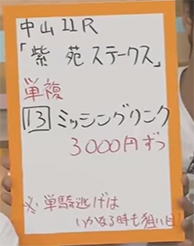 中山11R
「紫苑ステークス」
単複
⑬ミッシングリンク
3000円ずつ
※単騎逃げは
いかなる時も狙い目!